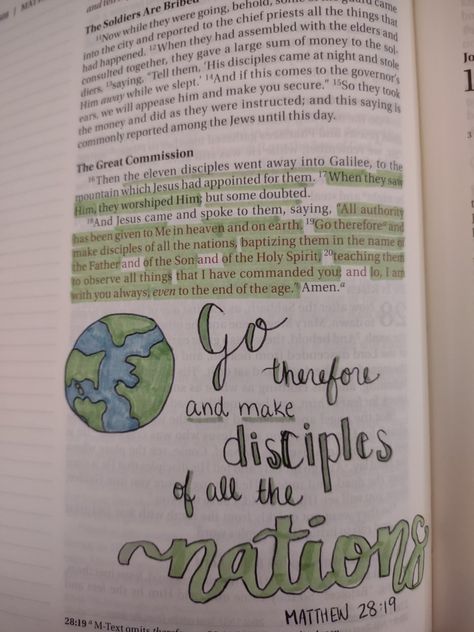 The Soldiers Are Bribed
¹¹Now while they were going, behold, some of the guard came
into the city and reported to the chief priests all the things that
had happened. ¹²When they had assembled with the elders and
consulted together, they gave a large sum of money to the sol-
diers, ¹³saying, "Tell them, 'His disciples came at night and stole
Him away while we slept.' ¹⁴And if this comes to the governor's
ears, we will appease him and make you secure." ¹⁵So they took
the money and did as they were instructed; and this saying is
commonly reported among the Jews until this day.
The Great Commission
¹⁶Then the eleven disciples went away into Galilee, to the
mountain which Jesus had appointed for them. ¹⁷When they saw
Him, they worshiped Him; but some doubted.
¹⁸And Jesus came and spoke to them, saying, "All authority
has been given to Me in heaven and on earth. ¹⁹Go thereforeᵃ and
make disciples of all the nations, baptizing them in the name of
the Father and of the Son and of the Holy Spirit, ²⁰teaching them
to observe all things that I have commanded you; and lo, I am
with you always, even to the end of the age." Amen.ᵃ
Go
therefore
and make
disciples
of all the
nations
MATTHEW 28:19
28:19 ᵃ M-Text omits